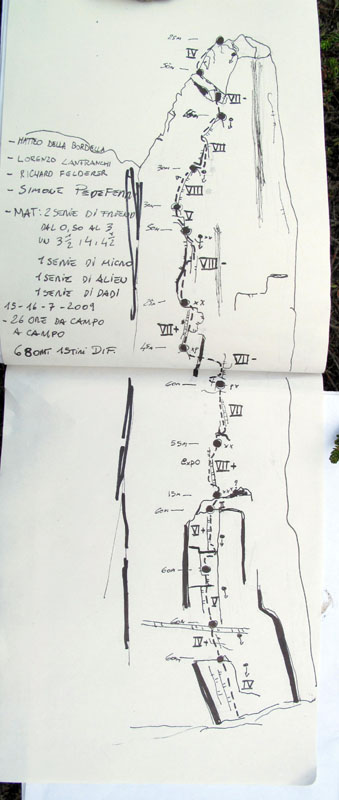 - MATTEO DELLA BORDELLA
- LORENZO LANFRANCHI
- RICHARD FELDERER
- SIMONE PEDEFERRI
- MAT: 2 SERIE DI FRIEND
DAL 0,50 AL 3
UN 3 1/2 ; 4 ; 4 1/2
1 SERIE DI MICRO
1 SERIE DI ALIEN
1 SERIE DI DADI
15-16-7-2009
- 26 ORE DA CAMPO
A CAMPO
25m
IV
50m
VII-
VII
30m
VIII
30m
V
50m
VIII-
25m
XX
VII+
45m
VII-
60m
VII
55m
XX
EXPO
VII+
15m
60m
VI+
60m
V
60m
IV+
60m
IV